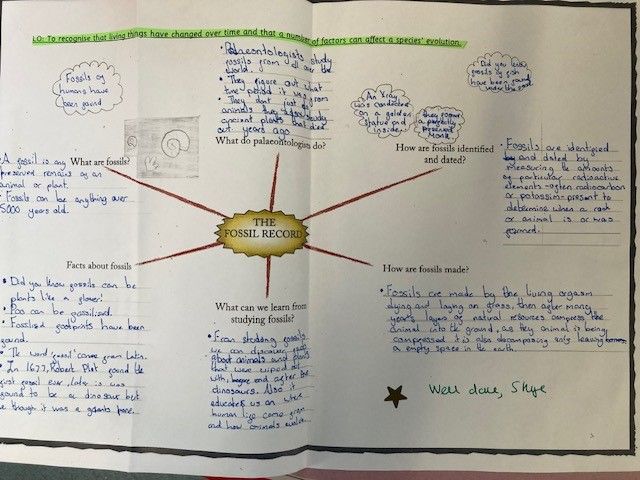 LO: To recognise that living things have changed over time and that a number of factors can affect a species' evolution.
Fossils of
humans have
been found
• Palaeontologists study
fossils from all over the
world.
• They figure out what
time-period it was from
• They don't just
animals they study
ancient plants that died
out years ago
An Xray
was conducted
on a golden
statue and
inside
they found
a perfectly
preserved
Monk
Did you know
fossils of fish
have been found
under the
What are fossils?
What do palaeontologists do?
How are fossils identified
and dated?
A fossil is any
preserved remains of an
animal or plant.
• Fossils can be anything over
5000 years old.
• Fossils are identified
and dated by
measuring the amounts
of particular radioactive
elements - often radiocarbon
or potassim - present to
determine when a rock
or animal is or was
formed.
THE
FOSSIL RECORD
Facts about fossils
What can we learn from
studying fossils?
How are fossils made?
• Did you know fossils can be
plants like a flower!
• Poo can be fossilised.
• Fossilised footprints have been
found.
• The word 'fossil' came from Latin.
• In 1677, Robert Plot found the
first fossil ever later is was
found to be a dinosaur but
he though it was a giants bone.
• From studing fossils
we can discover
about animals and plants
that were wiped out
with, before and after the
dinosaurs. Also it
educates us on where
human life came from
and how animals evolve.
• Fossils are made by the living orgasm
dying and laying on grass, then after many
years layers of natural resources compress the
animal into the ground, as they animal is being
compressed it is also decomposing only leaving
a empty space in the earth.
Well done, Skye